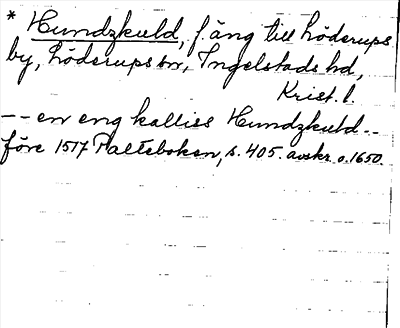 * Hundzkuld, f. äng till Löderups
by, Löderups sn, Ingelstads hd,
Krist. l.
-- en eng kalliss Hundzkuld --
före 1517 Palteboken, s. 405. avskr. o. 1650.